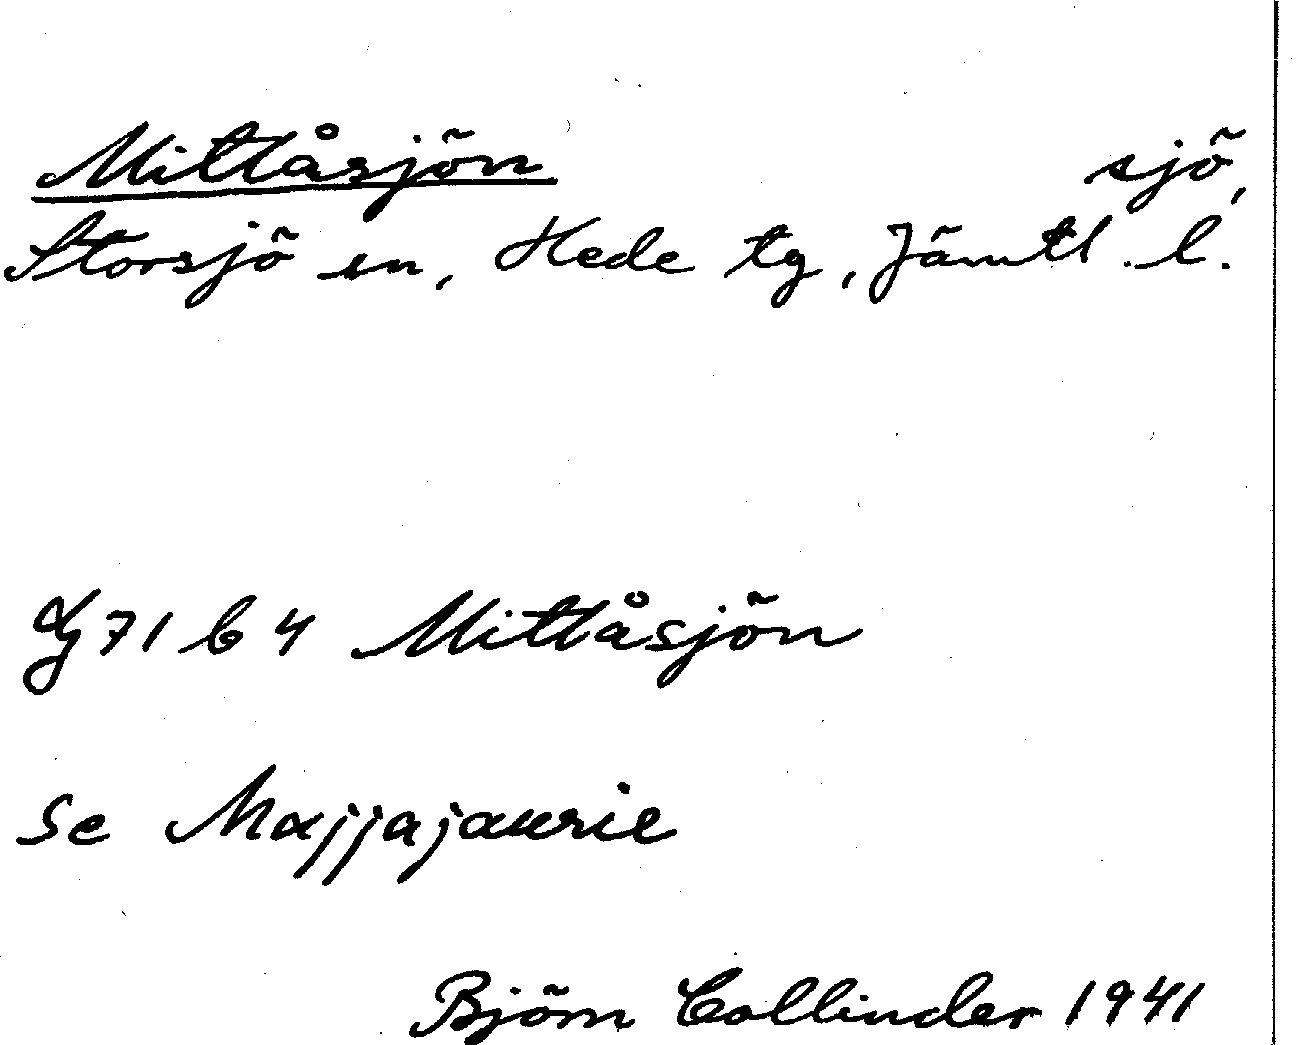 Mittåsjön sjö,
Storsjö sn, Hede tg, Jämtl. l.
Gg 71 b 4 Mittåsjön
Se Majjajaurie
Björn Collinder 1941